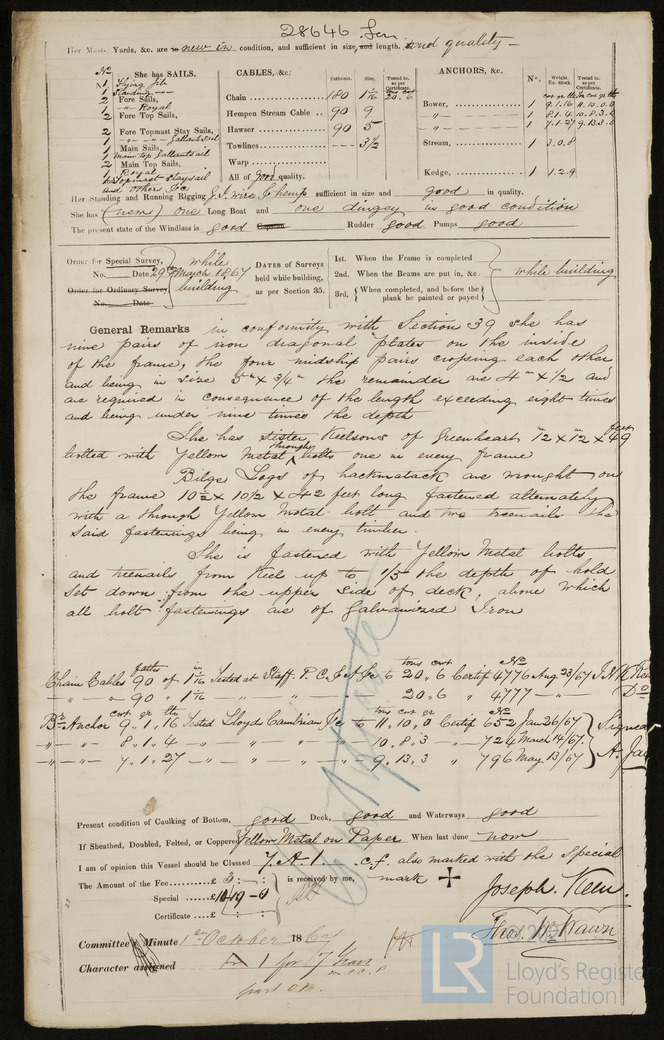 28646 Len.
Her Masts, Yards, &c. are in new in condition, and sufficient in size, and length. and quality —
No. She has SAILS.
1 Flying Jib
1 Standing — " —
2 Fore Sails,
1 — " — Royal
2 Fore Top Sails,
2 Fore Topmast Stay Sails,
1 — " — " — Gallant sail
1 Main Sails,
1 Main top Gallantsail
2 Main Top Sails,
1 Royal
Topmast staysail
and others &c
CABLES, &c. Fathoms. Size. Tested to as per Certificate.
Chain 180 1 7/16 20.6
Hempen Stream Cable 90 9
Hawser 90 5
Towlines --- 3 1/2
Warp
All of Good quality.
ANCHORS, &c. No. Weight. Ex. Stock. Tested to as per Certificate.
Bower, 1 9.1.16 11.10.0.0
— " — 1 8.1.4 10.8.3.0
— " — 1 7.1.27 9.13.3.0
Stream, 1 3.0.8
Kedge, 1 1.2.9
Her Standing and Running Rigging G.I. wire & hemp sufficient in size and good in quality.
She has (new) one Long Boat and one dingey in good condition
The present state of the Windlass is good Capstan Rudder good Pumps good
Order for Special Survey, while
No. Date 29th March 1867
Order for Ordinary Survey, building
No. Date
DATES of Surveys held while building, as per Section 35.
1st. When the Frame is completed
2nd. When the Beams are put in, &c. while building
3rd, When completed, and before the plank be painted or payed
General Remarks in conformity with Section 39 she has
nine pairs of iron diagonal plates on the inside
of the frame, the four midship pairs crossing each other
and being in size 5" x 3/4" the remainder are 4" x 1/2 and
are required in consequence of the length exceeding eight times
and being under nine times the depth
She has Sister Keelsons of Greenheart 12 x 12 x 49 feet
bolted with Yellow Metal through bolts one in every frame
Bilge Logs of hackmatack are wrought on
the frame 10 1/2 x 10 1/2 x 42 feet long fastened alternately
with a through Yellow Metal bolt and two treenails the
said fastenings being in every timber.
She is fastened with Yellow Metal bolts
and treenails from Keel up to 1/5 the depth of hold
set down from the upper side of deck, above which
all bolt fastenings are of Galvanized Iron
Chain Cables 90 faths of 1 7/16 in Tested at Staff. P.C. & A. Jc to 20 tons 6 cwt Certif No 4776 Aug 23/67
— " — 90 " 1 7/16 " " " " 20.6 " 4777 — " —
Br Anchor 9 cwt 1 qr 16 lbs Tested Lloyds Cambrian Jc to 11 tons 10 cwt 0 qr Certif No 652 Jan 26/67 Signed
— " — 8.1.4 — " — 10.8.3 " 724 March 14/67.
— " — 7.1.27 — " — 9.13.3 " 796 May 13/67
Present condition of Caulking of Bottom, good Deck, good and Waterways good
If Sheathed, Doubled, Felted, or Coppered Yellow Metal on Paper When last done now
I am of opinion this Vessel should be Classed 7. A. 1. c.f. also marked with the Special
The Amount of the Fee £ 3: — : — is received by me, mark ✠
Special £ 19-0
Certificate £ : :
Joseph Keen.
Committee's Minute 1st October 1867
Character assigned A 1 for 7 Years
© 2020
LR
Lloyd's Register
Foundation